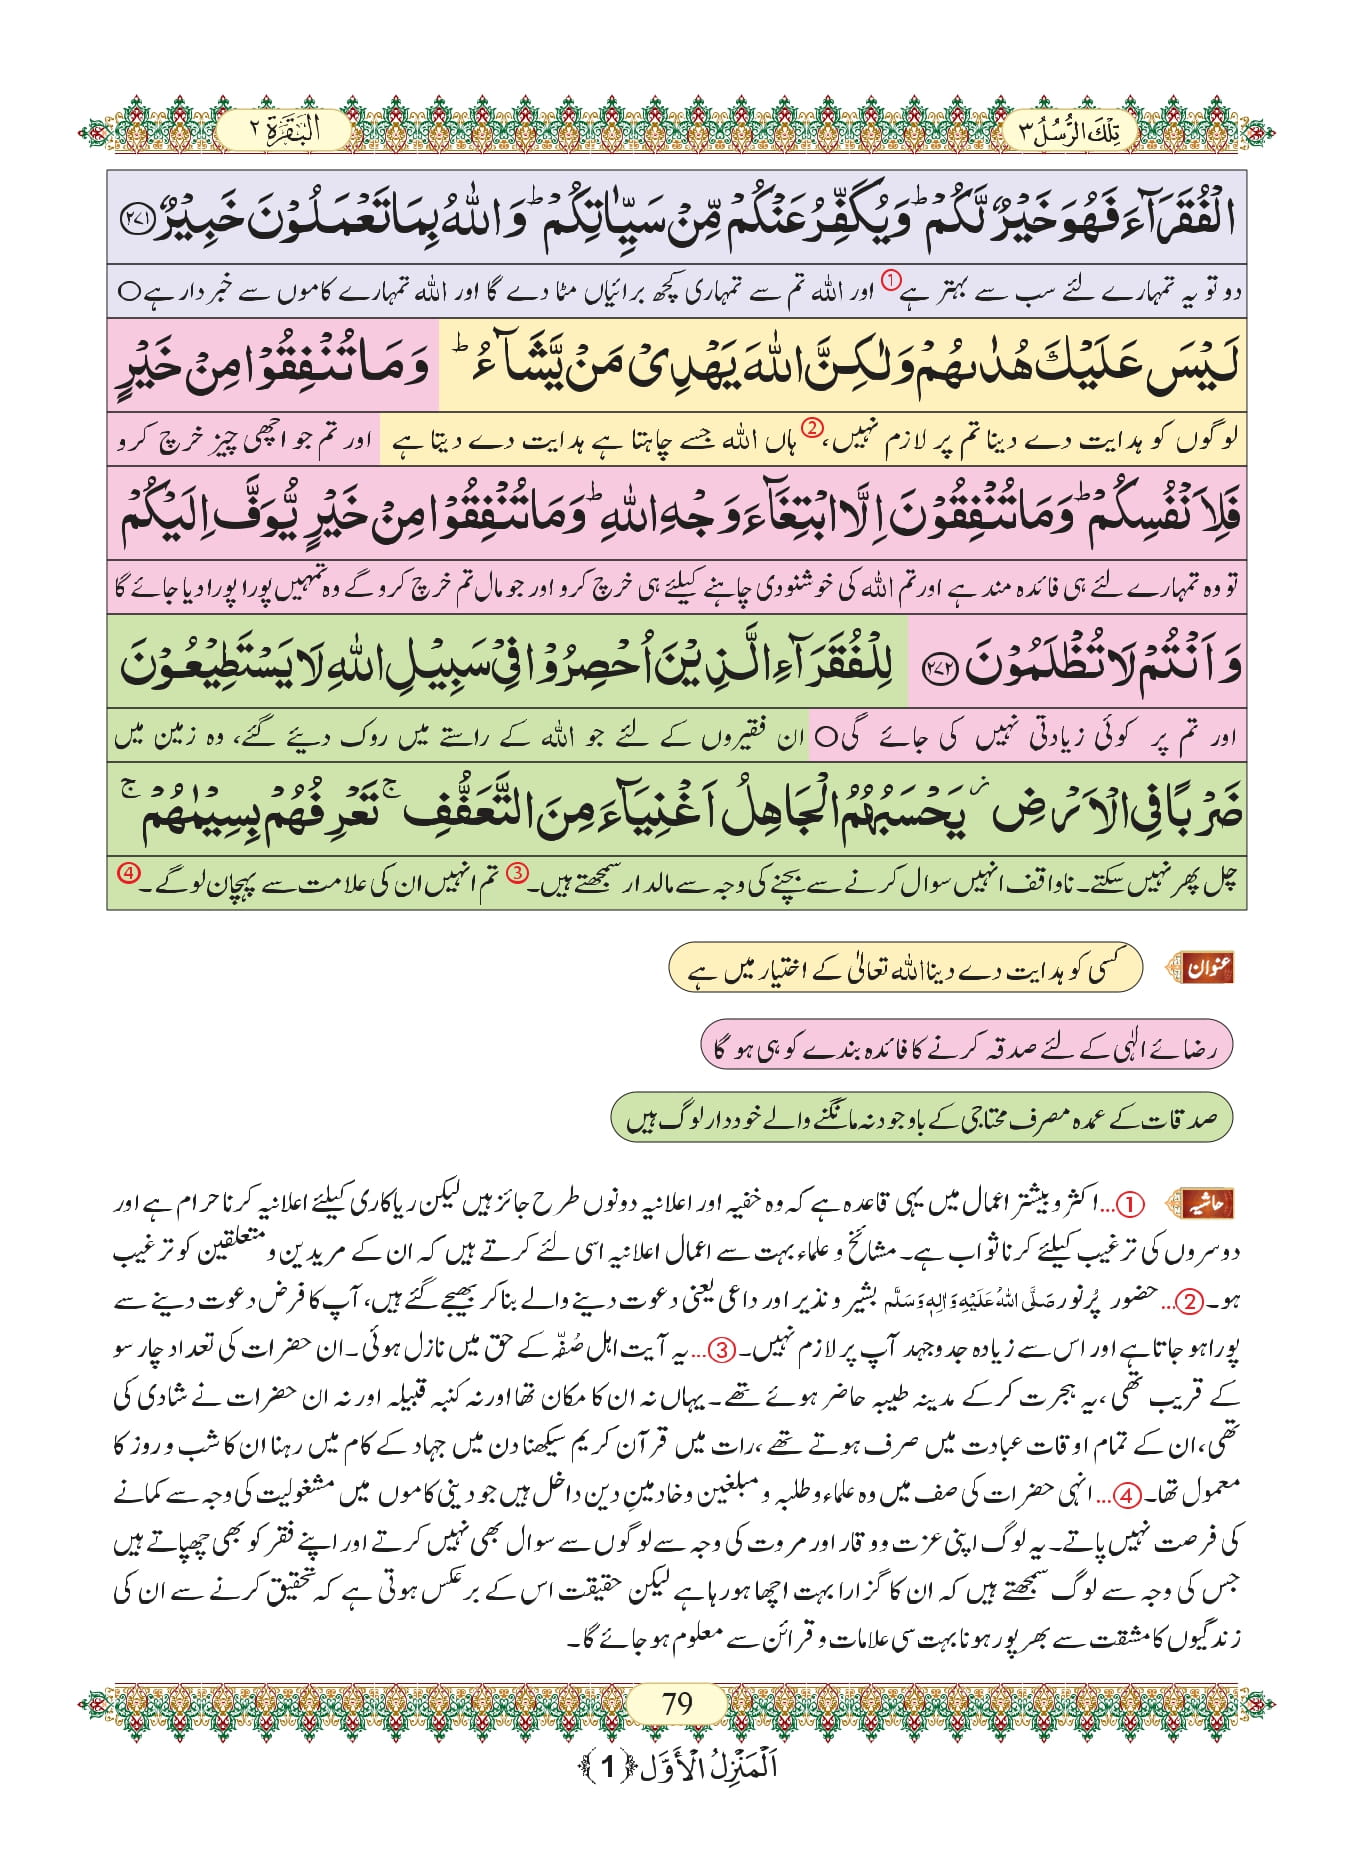 تِلْكَ الرُّسُلُ ٣
اَلْبَقَرَة ٢
الْفُقَرَآءَ فَهُوَ خَيْرٌ لَّكُمْ ؕ وَ يُكَفِّرُ عَنْكُمْ مِّنْ سَيِّاٰتِكُمْ ؕ وَ اللّٰهُ بِمَا تَعْمَلُوْنَ خَبِيْرٌ ﴿۲۷۱﴾
دو تو یہ تمہارے لئے سب سے بہتر ہے① اور اللہ تم سے تمہاری کچھ برائیاں مٹا دے گا اور اللہ تمہارے کاموں سے خبردار ہے○
لَيْسَ عَلَيْكَ هُدٰىهُمْ وَلٰكِنَّ اللّٰهَ يَهْدِىْ مَنْ يَّشَآءُ ؕ وَ مَا تُنْفِقُوْا مِنْ خَيْرٍ
لوگوں کو ہدایت دے دینا تم پر لازم نہیں،② ہاں اللہ جسے چاہتا ہے ہدایت دے دیتا ہے اور تم جو اچھی چیز خرچ کرو
فَلِاَنْفُسِكُمْ ؕ وَ مَا تُنْفِقُوْنَ اِلَّا ابْتِغَآءَ وَجْهِ اللّٰهِ ؕ وَ مَا تُنْفِقُوْا مِنْ خَيْرٍ يُّوَفَّ اِلَيْكُمْ
تو وہ تمہارے لئے ہی فائدہ مند ہے اور تم اللہ کی خوشنودی چاہنے کیلئے ہی خرچ کرو اور جو مال تم خرچ کرو گے وہ تمہیں پورا پورا دیا جائے گا
وَ اَنْتُمْ لَا تُظْلَمُوْنَ ﴿۲۷۲﴾ لِلْفُقَرَآءِ الَّذِيْنَ اُحْصِرُوْا فِىْ سَبِيْلِ اللّٰهِ لَا يَسْتَطِيْعُوْنَ
اور تم پر کوئی زیادتی نہیں کی جائے گی○ ان فقیروں کے لئے جو اللہ کے راستے میں روک دیئے گئے، وہ زمین میں
ضَرْبًا فِى الْاَرْضِ ؗ يَحْسَبُهُمُ الْجَاهِلُ اَغْنِيَآءَ مِنَ التَّعَفُّفِ ۚ تَعْرِفُهُمْ بِسِيْمٰهُمْ ۚ
چل پھر نہیں سکتے۔ ناواقف انہیں سوال کرنے سے بچنے کی وجہ سے مالدار سمجھتے ہیں۔③ تم انہیں ان کی علامت سے پہچان لو گے۔④
عنوان کسی کو ہدایت دے دینا اللہ تعالیٰ کے اختیار میں ہے
رضائے الٰہی کے لئے صدقہ کرنے کا فائدہ بندے کو ہی ہو گا
صدقات کے عمدہ مصرف محتاجی کے باوجود نہ مانگنے والے خوددار لوگ ہیں
حاشیہ ①...اکثر و بیشتر اعمال میں یہی قاعدہ ہے کہ وہ خفیہ اور اعلانیہ دونوں طرح جائز ہیں لیکن ریاکاری کیلئے اعلانیہ کرنا حرام ہے اور
دوسروں کی ترغیب کیلئے کرنا ثواب ہے۔ مشائخ و علماء بہت سے اعمال اعلانیہ اسی لئے کرتے ہیں کہ ان کے مریدین و متعلقین کو ترغیب
ہو۔ ②...حضور پُرنور صَلَّی اللہُ عَلَیْہِ وَاٰلِہٖ وَسَلَّم بشیر و نذیر اور داعی یعنی دعوت دینے والے بنا کر بھیجے گئے ہیں، آپ کا فرض دعوت دینے سے
پورا ہو جاتا ہے اور اس سے زیادہ جدوجہد آپ پر لازم نہیں۔ ③...یہ آیت اہل صُفّہ کے حق میں نازل ہوئی۔ ان حضرات کی تعداد چار سو
کے قریب تھی، یہ ہجرت کرکے مدینہ طیبہ حاضر ہوئے تھے۔ یہاں نہ ان کا مکان تھا اور نہ کنبہ قبیلہ اور نہ ان حضرات نے شادی کی
تھی، ان کے تمام اوقات عبادت میں صرف ہوتے تھے، رات میں قرآن کریم سیکھنا دن میں جہاد کے کام میں رہنا ان کا شب و روز کا
معمول تھا۔ ④...انہی حضرات کی صف میں وہ علماء و طلبہ و مبلغین و خادمینِ دین داخل ہیں جو دینی کاموں میں مشغولیت کی وجہ سے کمانے
کی فرصت نہیں پاتے۔ یہ لوگ اپنی عزت و وقار اور مروت کی وجہ سے لوگوں سے سوال بھی نہیں کرتے اور اپنے فقر کو بھی چھپاتے ہیں
جس کی وجہ سے لوگ سمجھتے ہیں کہ ان کا گزارا بہت اچھا ہو رہا ہے لیکن حقیقت اس کے برعکس ہوتی ہے کہ تحقیق کرنے سے ان کی
زندگیوں کا مشقت سے بھرپور ہونا بہت سی علامات و قرائن سے معلوم ہو جائے گا۔
79
اَلْمَنْزِلُ الْاَوَّل ﴿1﴾